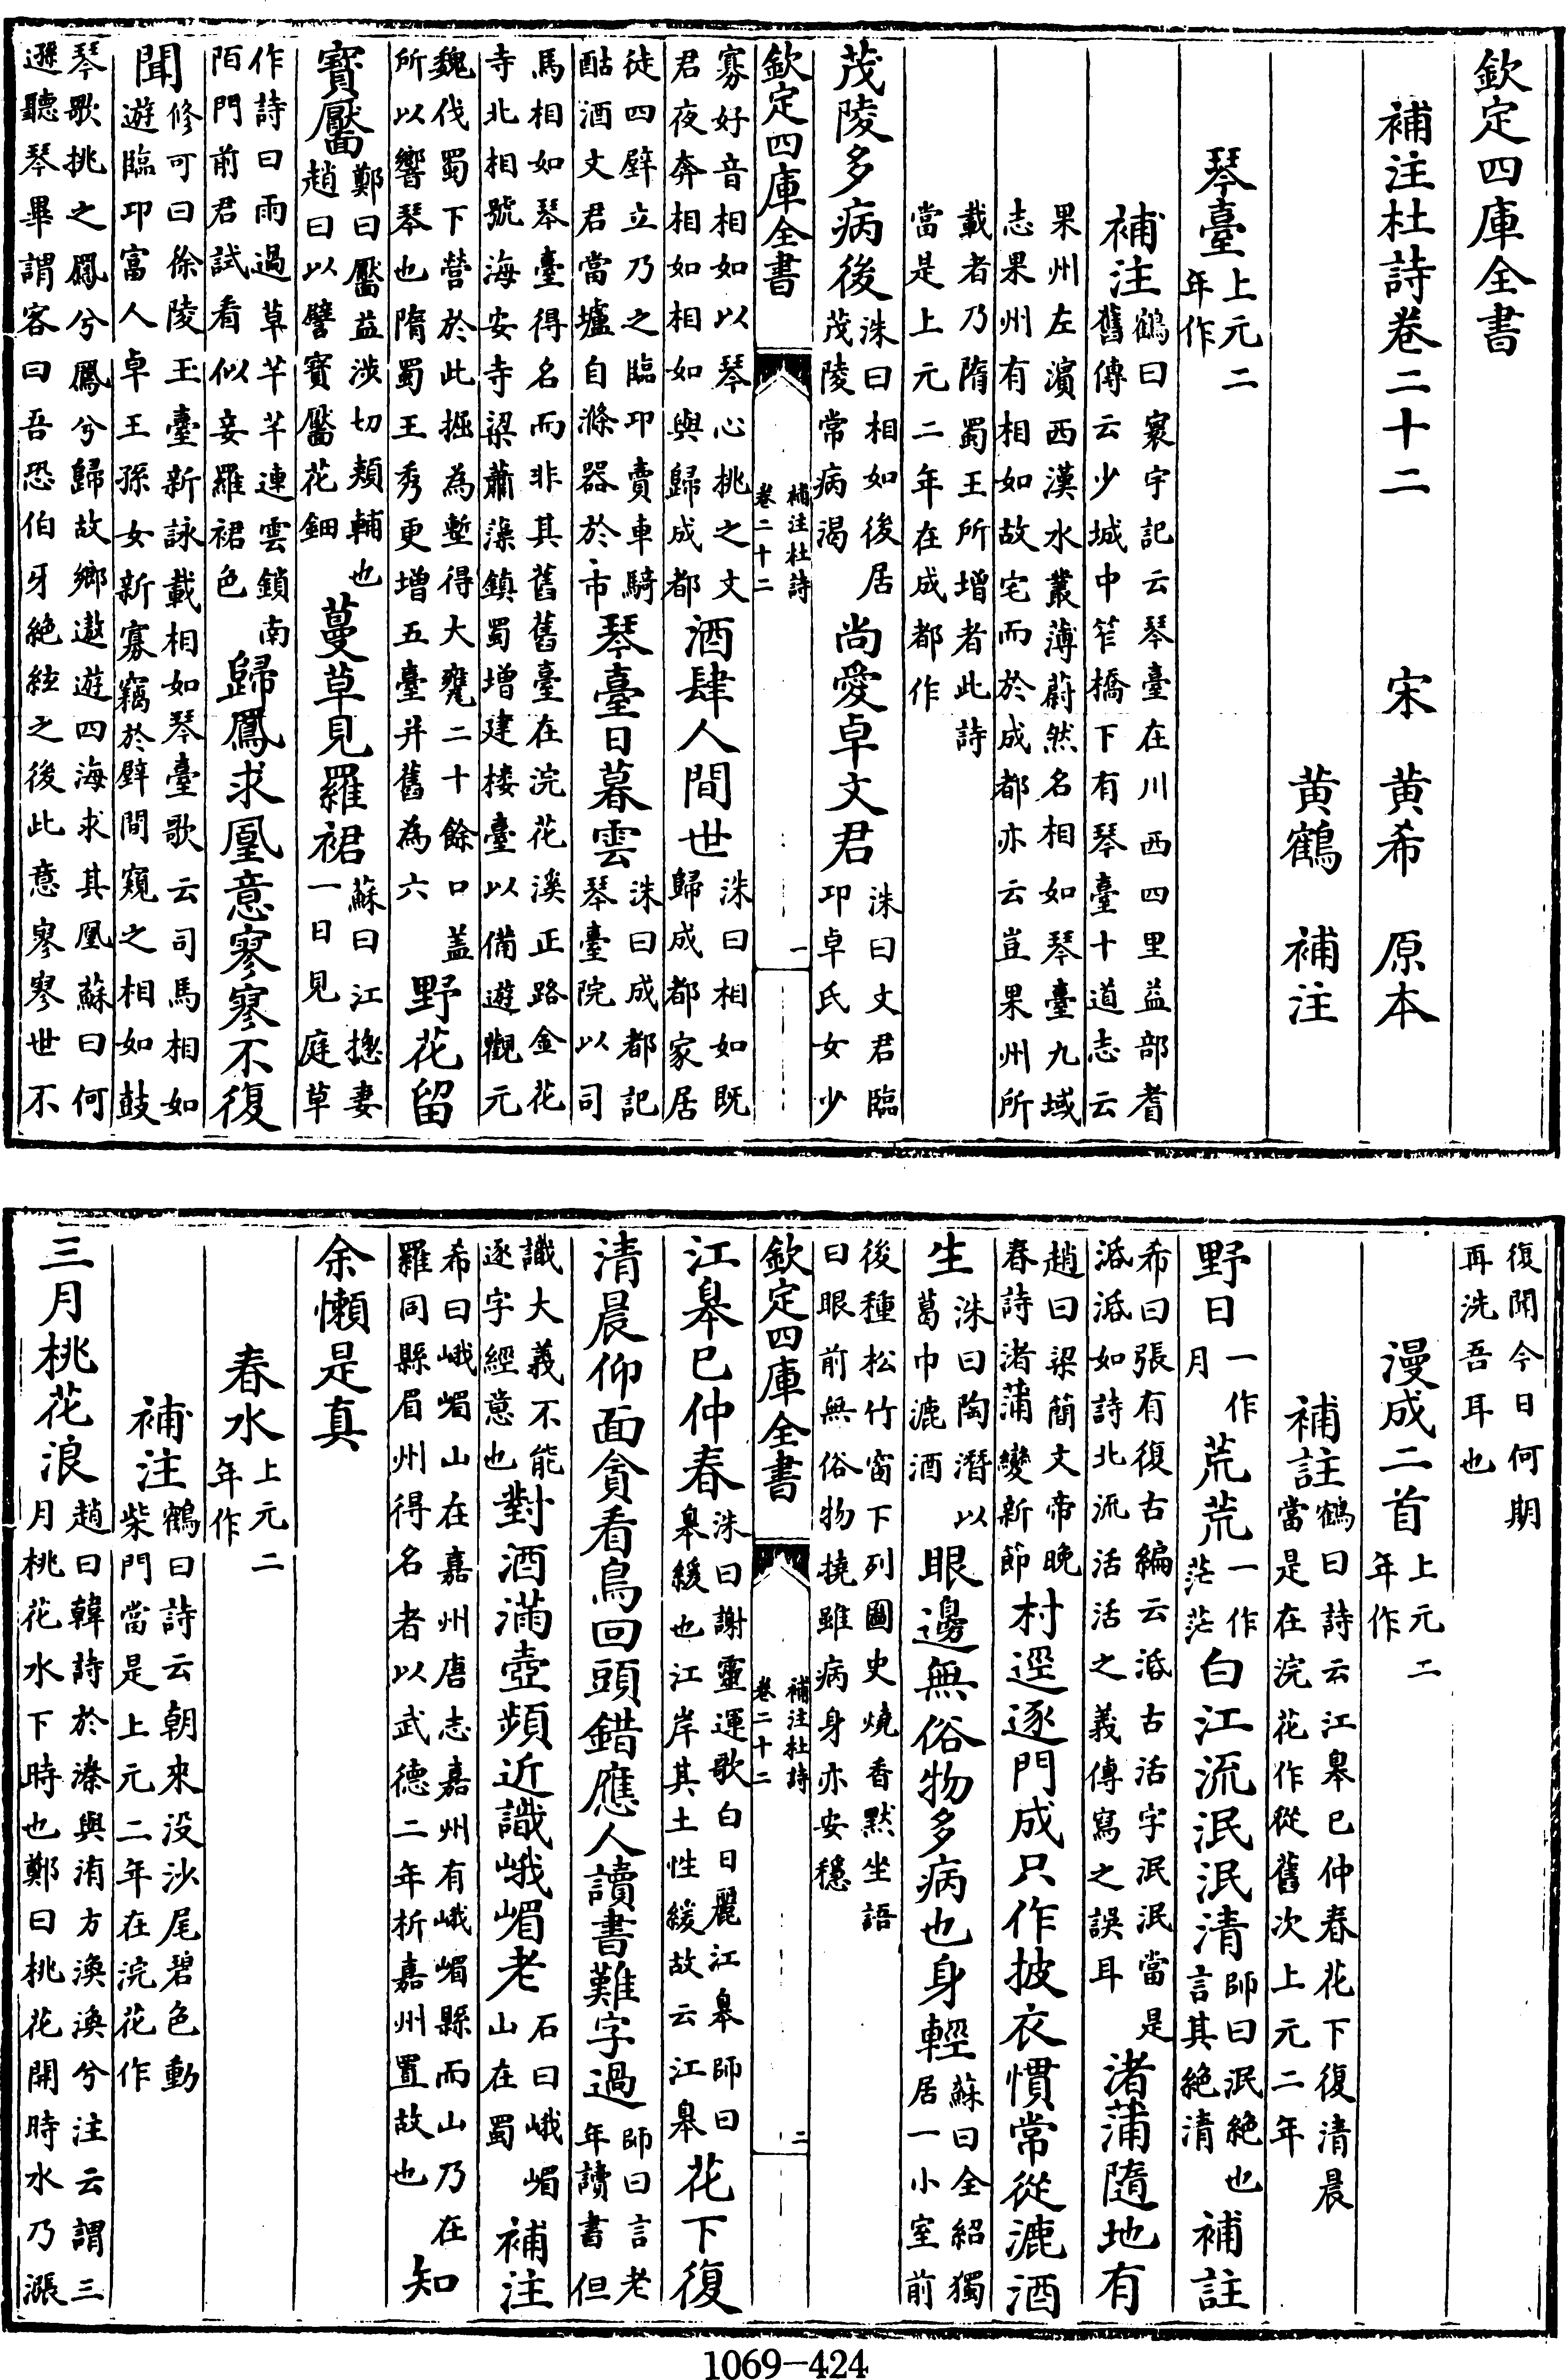 欽定四庫全書
補注杜詩卷二十二 宋 黄希 原本
黄鶴 補注
琴臺上元二年作
補注鶴曰寰宇記云琴臺在川西四里益部耆舊傳云少城中笮橋下有琴臺十道志云
果州左濵西漢水叢薄蔚然名相如琴臺九域志果州有相如故宅而於成都亦云豈果州所
載者乃隋蜀王所增者此詩當是上元二年在成都作
茂陵多病後洙曰相如後居茂陵常病渴尚愛卓文君洙曰文君臨卭卓氏女少
欽定四庫全書 補注杜詩 卷二十二 一
寡好音相如以琴心挑之文君夜奔相如相如與歸成都酒肆人間世洙曰相如既歸成都家居
徒四壁立乃之臨卭賣車騎酤酒文君當壚自滌器於市琴臺日暮雲洙曰成都記琴臺院以司
馬相如琴臺得名而非其舊舊臺在浣花溪正路金花寺北相號海安寺梁蕭藻鎮蜀增建楼臺以備遊觀元
魏伐蜀下營於此掘為塹得大甕二十餘口盖所以響琴也隋蜀王秀更增五臺并舊為六野花留
寳靨鄭曰靨益涉切頰輔也趙曰以譬寳靨花鈿蔓草見羅裙蘇曰江摠妻一日見庭草
作詩曰雨過草芊芊連雲鎖南陌門前君試看似妾羅裙色歸鳳求凰意寥寥不復
聞修可曰徐陵玉臺新詠載相如琴臺歌云司馬相如遊臨卭富人卓王孫女新寡竊於壁間窺之相如鼓
琴歌挑之鳳兮鳳兮歸故鄉遨遊四海求其凰蘇曰何遜聽琴畢謂客曰吾恐伯牙絶絃之後此意寥寥世不
復聞今日何期再洗吾耳也
漫成二首上元二年作
補註鶴曰詩云江皋已仲春花下復清晨當是在浣花作從舊次上元二年
野日一作月荒荒一作茫茫白江流泯泯清師曰泯絶也言其絶清補註
希曰張有復古編云涽古活字泯泯當是涽涽如詩北流活活之義傳寫之誤耳渚蒲隨地有
趙曰梁簡文帝晚春詩渚蒲變新節村逕逐門成只作披衣慣常從漉酒
生洙曰陶潛以葛巾漉酒眼邊無俗物多病也身輕蘇曰全紹獨居一小室前
後種松竹窗下列圖史燒香默坐語曰眼前無俗物撓雖病身亦安穩
欽定四庫全書 補注杜詩 卷二十二 二
江皋已仲春洙曰謝靈運歌白日麗江皋師曰皋緩也江岸其土性緩故云江皋花下復
清晨仰面貪看鳥回頭錯應人讀書難字過師曰言老年讀書但
識大義不能逐字經意也對酒滿壺頻近識峨嵋老石曰峨嵋山在蜀補注
希曰峨嵋山在嘉州唐志嘉州有峨嵋縣而山乃在羅同縣眉州得名者以武德二年析嘉州置故也知
余懶是真
春水上元二年作
補注鶴曰詩云朝來没沙尾碧色動柴門當是上元二年在浣花作
三月桃花浪趙曰韓詩於溱與洧方渙渙兮注云謂三月桃花水下時也鄭曰桃花開時水乃漲
1069-424